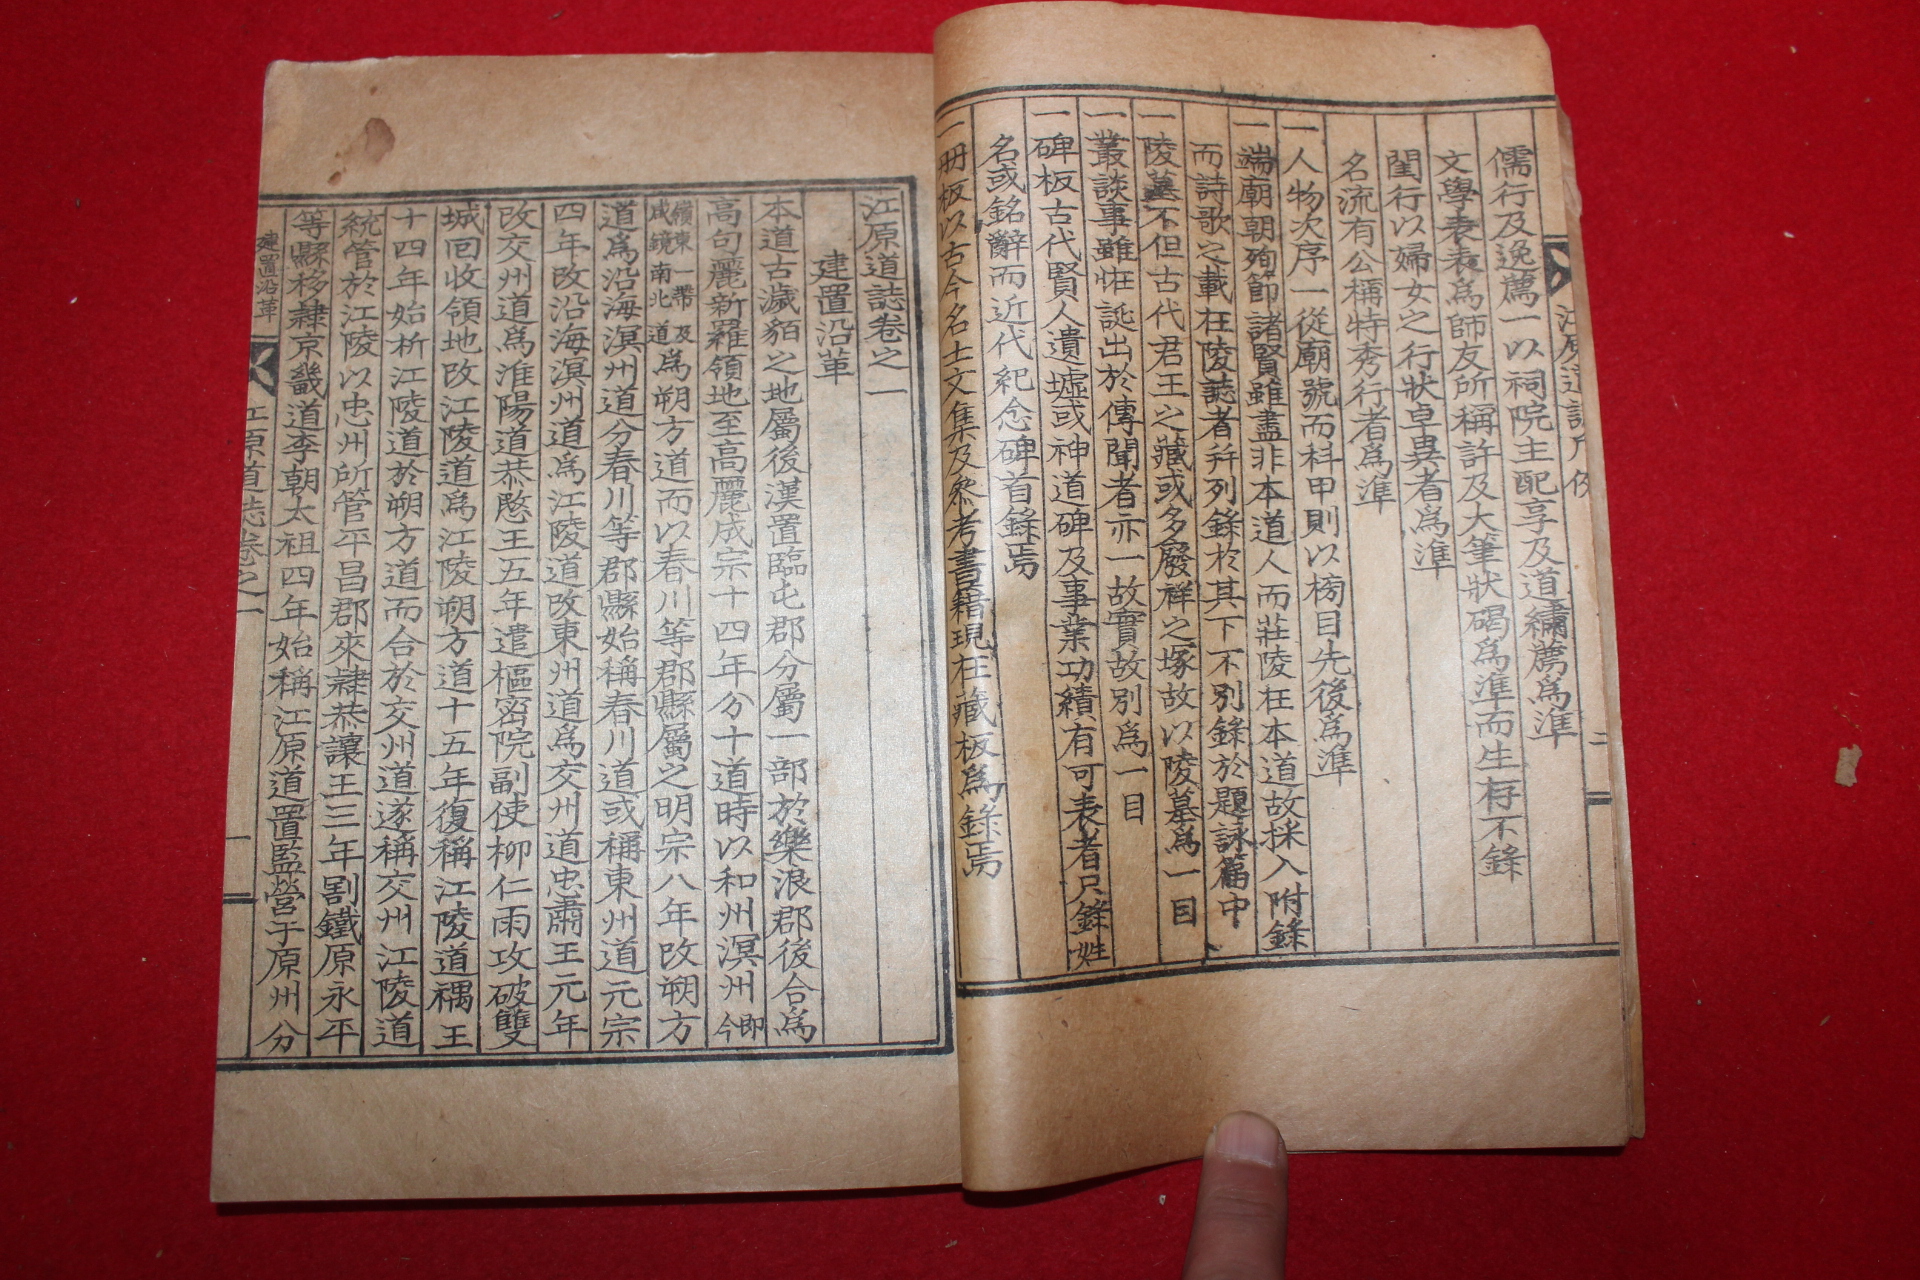 江原道誌凡例
二
儒行及逸薦一以祠院主配享及道繡薦爲準
文學表表爲師友所稱許及大筆狀碣爲準而生存不錄
閨行以婦女之行狀卓異者爲準
名流有公稱特秀行者爲準
一人物次序一從廟號而科甲則以榜目先後爲準
一端廟朝殉節諸賢雖盡非本道人而莊陵在本道故採入附錄
而詩歌之載在陵誌者幷列錄於其下不別錄於題詠篇中
一陵墓不但古代君王之藏或多廢祥之塚故以陵墓爲一目
一叢談事雖恠誕出於傳聞者亦一故實故別爲一目
一碑板古代賢人遺墟或神道碑及事業功績有可表者只錄姓
名或銘辭而近代紀念碑首錄焉
一冊板以古今名士文集及參考書籍現在藏板爲錄焉
江原道誌卷之一
建置沿革
本道古濊貊之地屬後漢置臨屯郡分屬一部於樂浪郡後合爲
高句麗新羅領地至高麗成宗十四年分十道時以和州溟州今卽
嶺東一帶及咸鏡南北道爲朔方道而以春川等郡縣屬之明宗八年改朔方
道爲沿海溟州道分春川等郡縣始稱春川道或稱東州道元宗
四年改沿海溟州道爲江陵道改東州道爲交州道忠肅王元年
改交州道爲淮陽道恭愍王五年遣樞密院副使柳仁雨攻破雙
城回收領地改江陵道爲江陵朔方道十五年復稱江陵道禑王
十四年始析江陵道於朔方道而合於交州道遂稱交州江陵道
統管於江陵以忠州所管平昌郡來隷恭讓王三年割鐵原永平
等縣移隷京畿道李朝太祖四年始稱江原道置監營于原州分
建置沿革
江原道誌卷之一
一